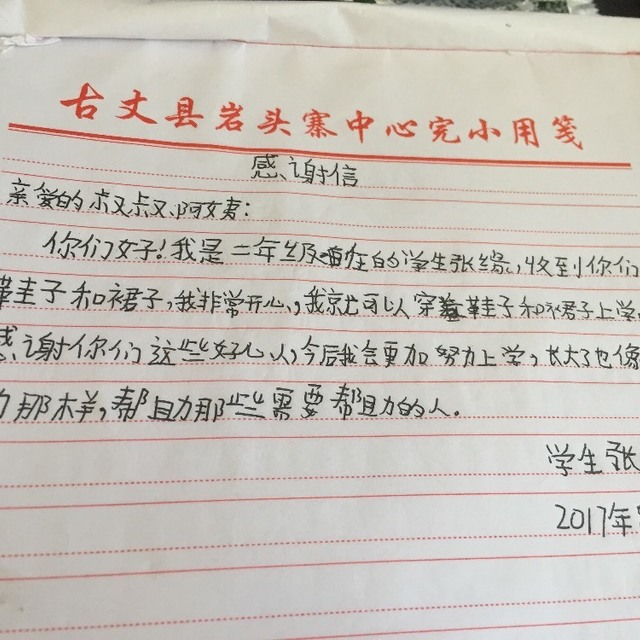 古丈县岩头寨中心完小用笺
感谢信
亲爱的叔叔阿姨:
你们好!我是二年级的学生张缘,收到你们
鞋子和裙子,我非常开心,我就可以穿着鞋子和裙子上学
感谢你们这些好心人,今后我会更加努力上学,长大了也像
们那样,帮助那些需要帮助的人。
学生张
2017年